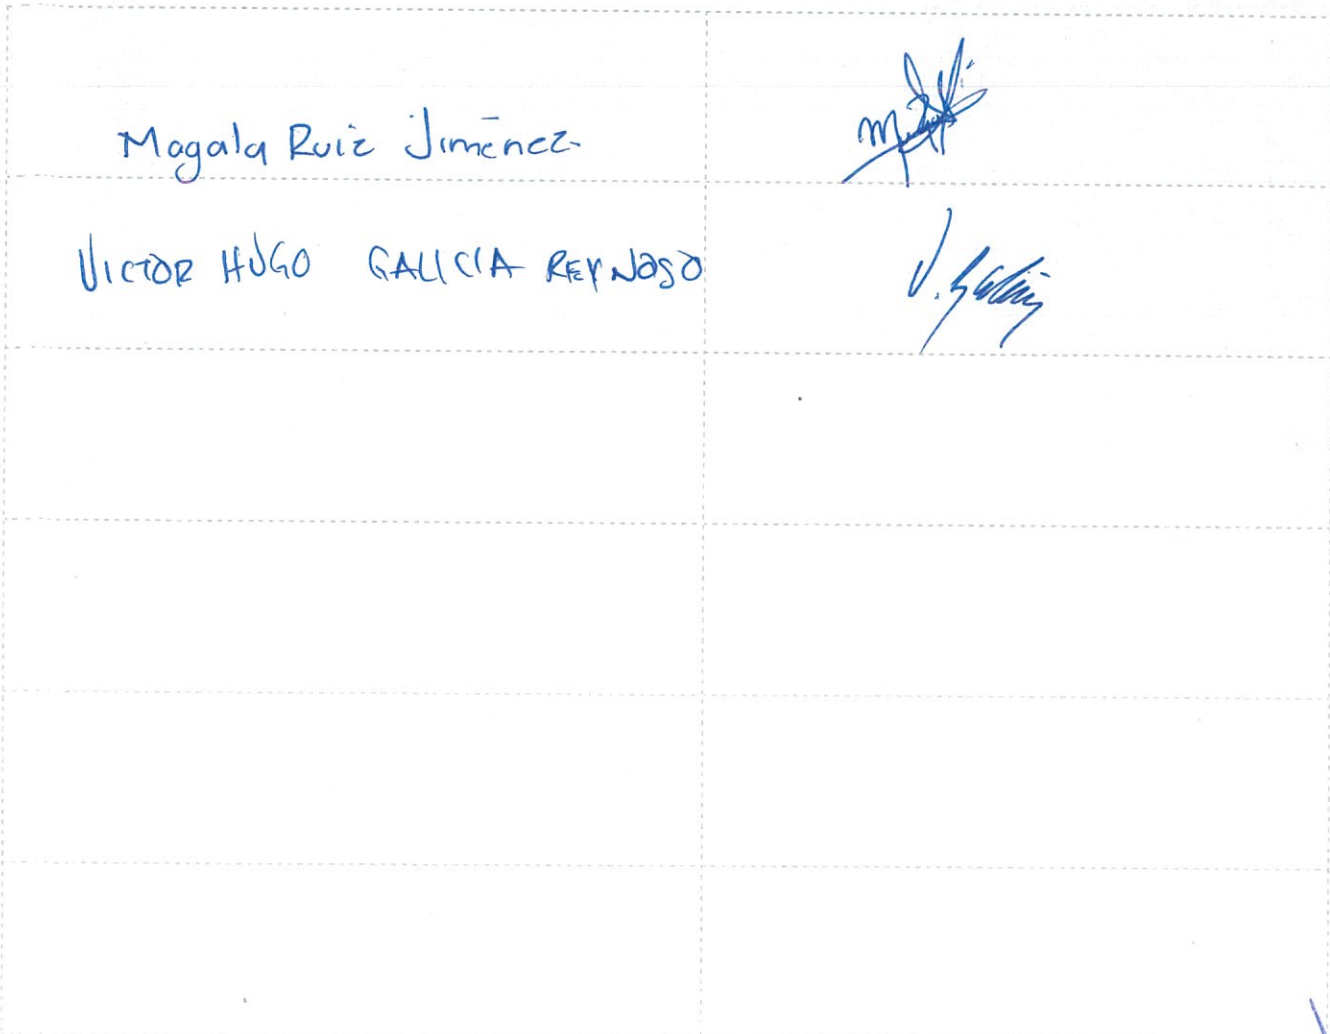 Magala Ruiz Jiménez
VICTOR HUGO GALICIA REYNOSO
V. Galicia